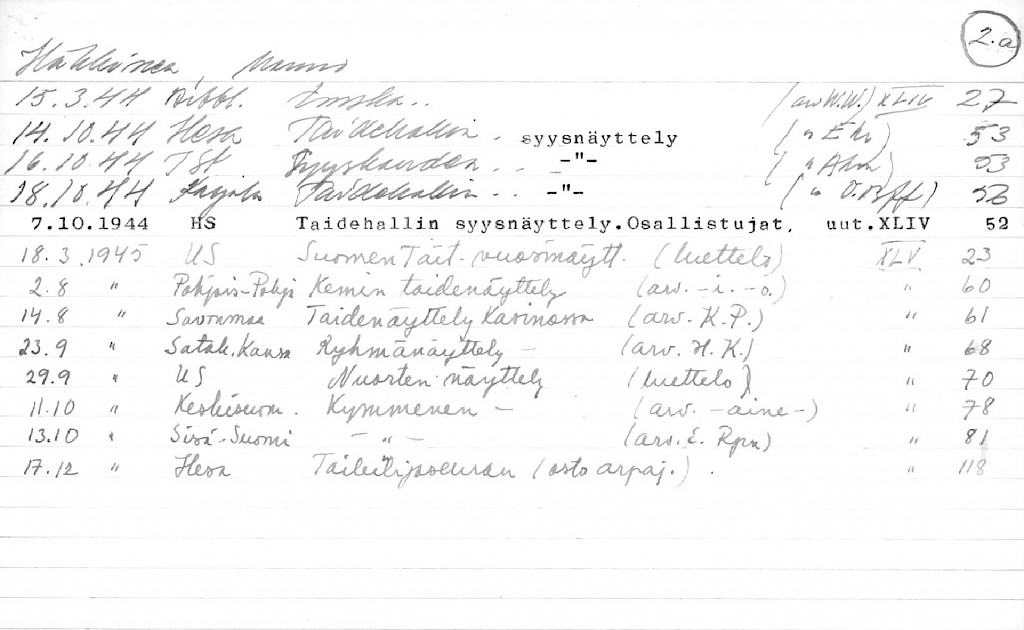 2.a
Häkkinen, Mauno
15.3.44 Bibbl. (arv W.W.) XLIV 27
14.10.44 Hesa Taidehallin syysnäyttely (" Ehr) 53
16.10.44 TSt Syyskauden .. -"- (" Ahm) 53
18.10.44 Karjala Taidehallin .. -"- (" O.) 56
7.10.1944 HS Taidehallin syysnäyttely.Osallistujat, uut.XLIV 52
18.3.1945 US Suomen Tait. vuosinäytt. (luettelo) XLV 23
2.8 " Pohjois-Pohj Kemin taidenäyttely (arv. -i. -o.) " 60
14.8 " Savonmaa Taidenäyttely Kasinossa (arv. K.P.) " 61
23.9 " Satak.Kansa Ryhmänäyttely - (arv. H.K.) " 68
29.9 " US Nuorten näyttely (luettelo) " 70
11.10 " Keskisuom. Kymmenen - (arv. -aine-) " 78
13.10 " Sisä-Suomi - " - (arv. E. Rpn) " 81
17.12 " Hesa Taiteilijaseuran (osto arpaj.). " 118